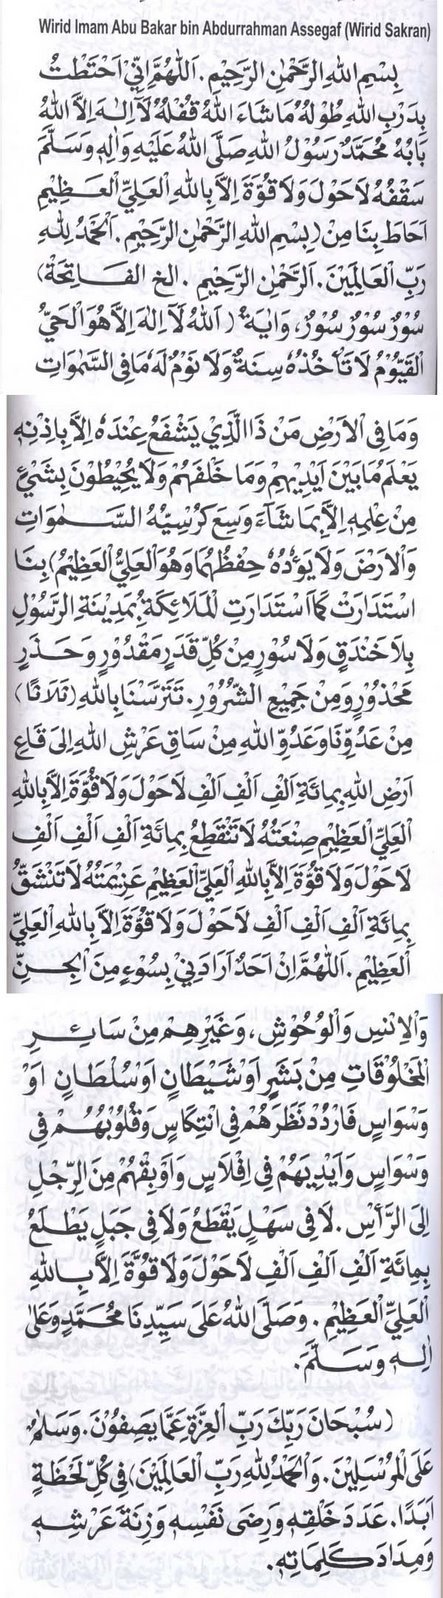 Wirid Imam Abu Bakar bin Abdurrahman Assegaf (Wirid Sakran)
بِسْمِ اللهِ الرَّحْمٰنِ الرَّحِيْمِ. اَللّٰهُمَّ اِنِّيْ اَحْتَطْتُ
بِدَرْبِ اللهِ طُوْلُهُ مَاشَاءَ اللهُ قُفْلُهُ لَآ اِلٰهَ اِلَّا اللهُ
بَابُهُ مُحَمَّدٌ رَسُوْلُ اللهِ صَلَّى اللهُ عَلَيْهِ وَاٰلِهٖ وَسَلَّمَ
سَقْفُهُ لَاحَوْلَ وَلَا قُوَّةَ اِلَّا بِاللهِ الْعَلِيِّ الْعَظِيْمِ
اَحَاطَ بِنَا مِنْ (بِسْمِ اللهِ الرَّحْمٰنِ الرَّحِيْمِ. اَلْحَمْدُ لِلّٰهِ
رَبِّ الْعَالَمِيْنَ. اَلرَّحْمٰنِ الرَّحِيْمِ. الخ الفَاتِحَةْ)
سُوْرٌ سُوْرٌ سُوْرٌ، وَاٰيَةٌ ( اَللهُ لَآ اِلٰهَ اِلَّا هُوَ الْحَيُّ
الْقَيُّوْمُ لَا تَأْخُذُهُ سِنَةٌ وَلَا نَوْمٌ لَهُ مَا فِى السَّمٰوَاتِ
وَمَا فِى الْاَرْضِ مَنْ ذَا الَّذِيْ يَشْفَعُ عِنْدَهُ اِلَّا بِاِذْنِهٖ
يَعْلَمُ مَا بَيْنَ اَيْدِيْهِمْ وَمَا خَلْفَهُمْ وَلَا يُحِيْطُوْنَ بِشَيْءٍ
مِنْ عِلْمِهٖ اِلَّا بِمَا شَآءَ وَسِعَ كُرْسِيُّهُ السَّمٰوَاتِ
وَالْاَرْضَ وَلَا يَؤُدُهُ حِفْظُهُمَا وَهُوَ الْعَلِيُّ الْعَظِيْمُ) بِنَا
اسْتَدَارَتْ كَمَا اسْتَدَارَتِ الْمَلَائِكَةُ بِمَدِيْنَةِ الرَّسُوْلِ
بِلَا خَنْدَقٍ وَلَا سُوْرٍ مِنْ كُلِّ قَدَرٍ مَقْدُوْرٍ وَحَذَرٍ
مَحْذُوْرٍ وَمِنْ جَمِيْعِ الشُّرُوْرِ. تَتَرَّسْنَا بِاللهِ (ثَلَاثًا)
مِنْ عَدُوِّنَا وَعَدُوِّ اللهِ مِنْ سَاقِ عَرْشِ اللهِ اِلَى قَاعِ
اَرْضِ اللهِ بِمِائَةِ اَلْفِ اَلْفِ اَلْفِ لَاحَوْلَ وَلَا قُوَّةَ اِلَّا بِاللهِ
الْعَلِيِّ الْعَظِيْمِ صِنْعَتُهُ لَا تَنْقَطِعُ بِمِائَةِ اَلْفِ اَلْفِ اَلْفِ
لَاحَوْلَ وَلَا قُوَّةَ اِلَّا بِاللهِ الْعَلِيِّ الْعَظِيْمِ عَزِيْمَتُهُ لَا تَنْشَقُّ
بِمِائَةِ اَلْفِ اَلْفِ اَلْفِ لَاحَوْلَ وَلَا قُوَّةَ اِلَّا بِاللهِ الْعَلِيِّ
الْعَظِيْمِ. اَللّٰهُمَّ اِنْ اَحَدٌ اَرَادَنِيْ بِسُوْءٍ مِنَ الْجِنِّ
وَالْاِنْسِ وَالْوُحُوْشِ، وَغَيْرِهِمْ مِنْ سَائِرِ
الْمَخْلُوْقَاتِ مِنْ بَشَرٍ اَوْ شَيْطَانٍ اَوْ سُلْطَانٍ اَوْ
وَسْوَاسٍ فَارْدُدْ نَظَرَهُمْ فِى انْتِكَاسٍ وَقُلُوْبَهُمْ فِى
وَسْوَاسٍ وَاَيْدِيَهُمْ فِى اِفْلَاسٍ وَاَوْبِقْهُمْ مِنَ الرِّجْلِ
اِلَى الرَّأْسِ. لَا فِى سَهْلٍ يَقْطَعُ وَلَا فِى جَبَلٍ يَطْلَعُ
بِمِائَةِ اَلْفِ اَلْفِ اَلْفِ لَاحَوْلَ وَلَا قُوَّةَ اِلَّا بِاللهِ
الْعَلِيِّ الْعَظِيْمِ. وَصَلَّى اللهُ عَلَى سَيِّدِنَا مُحَمَّدٍ وَعَلَى
اٰلِهٖ وَسَلَّمَ.
(سُبْحَانَ رَبِّكَ رَبِّ الْعِزَّةِ عَمَّا يَصِفُوْنَ. وَسَلَامٌ
عَلَى الْمُرْسَلِيْنَ. وَالْحَمْدُ لِلّٰهِ رَبِّ الْعَالَمِيْنَ) فِى كُلِّ لَحْظَةٍ
اَبَدًا. عَدَدَ خَلْقِهٖ وَرِضَى نَفْسِهٖ وَزِنَةَ عَرْشِهٖ
وَمِدَادَ كَلِمَاتِهٖ.